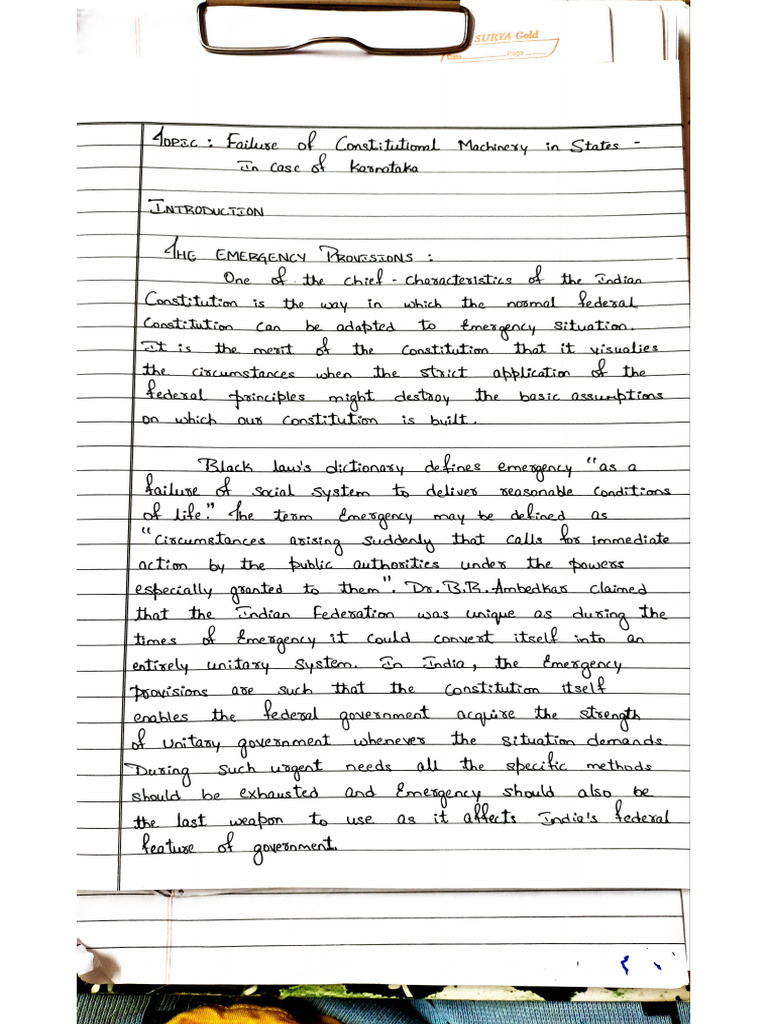 SURYA Gold
Date Page
TOPIC : Failure of Constitutional Machinery in States -
In case of Karnataka
INTRODUCTION
THE EMERGENCY PROVISIONS :
One of the chief - characteristics of the Indian
Constitution is the way in which the normal federal
Constitution can be adapted to Emergency Situation.
It is the merit of the Constitution that it visualies
the circumstances when the strict application of the
federal principles might destroy the basic assumptions
on which our constitution is built.
Black law's dictionary defines emergency "as a
failure of social system to deliver reasonable conditions
of life". The term Emergency may be defined as
"Circumstances arising suddenly that calls for immediate
action by the public authorities under the powers
especially granted to them". Dr. B.R. Ambedkar claimed
that the Indian Federation was unique as during the
times of Emergency it could convert itself into an
entirely unitary system. In India, the Emergency
provisions are such that the constitution itself
enables the federal government acquire the strength
of unitary government whenever the situation demands.
During such urgent needs all the specific methods
should be exhausted and Emergency should also be
the last weapon to use as it affects India's federal
feature of government.